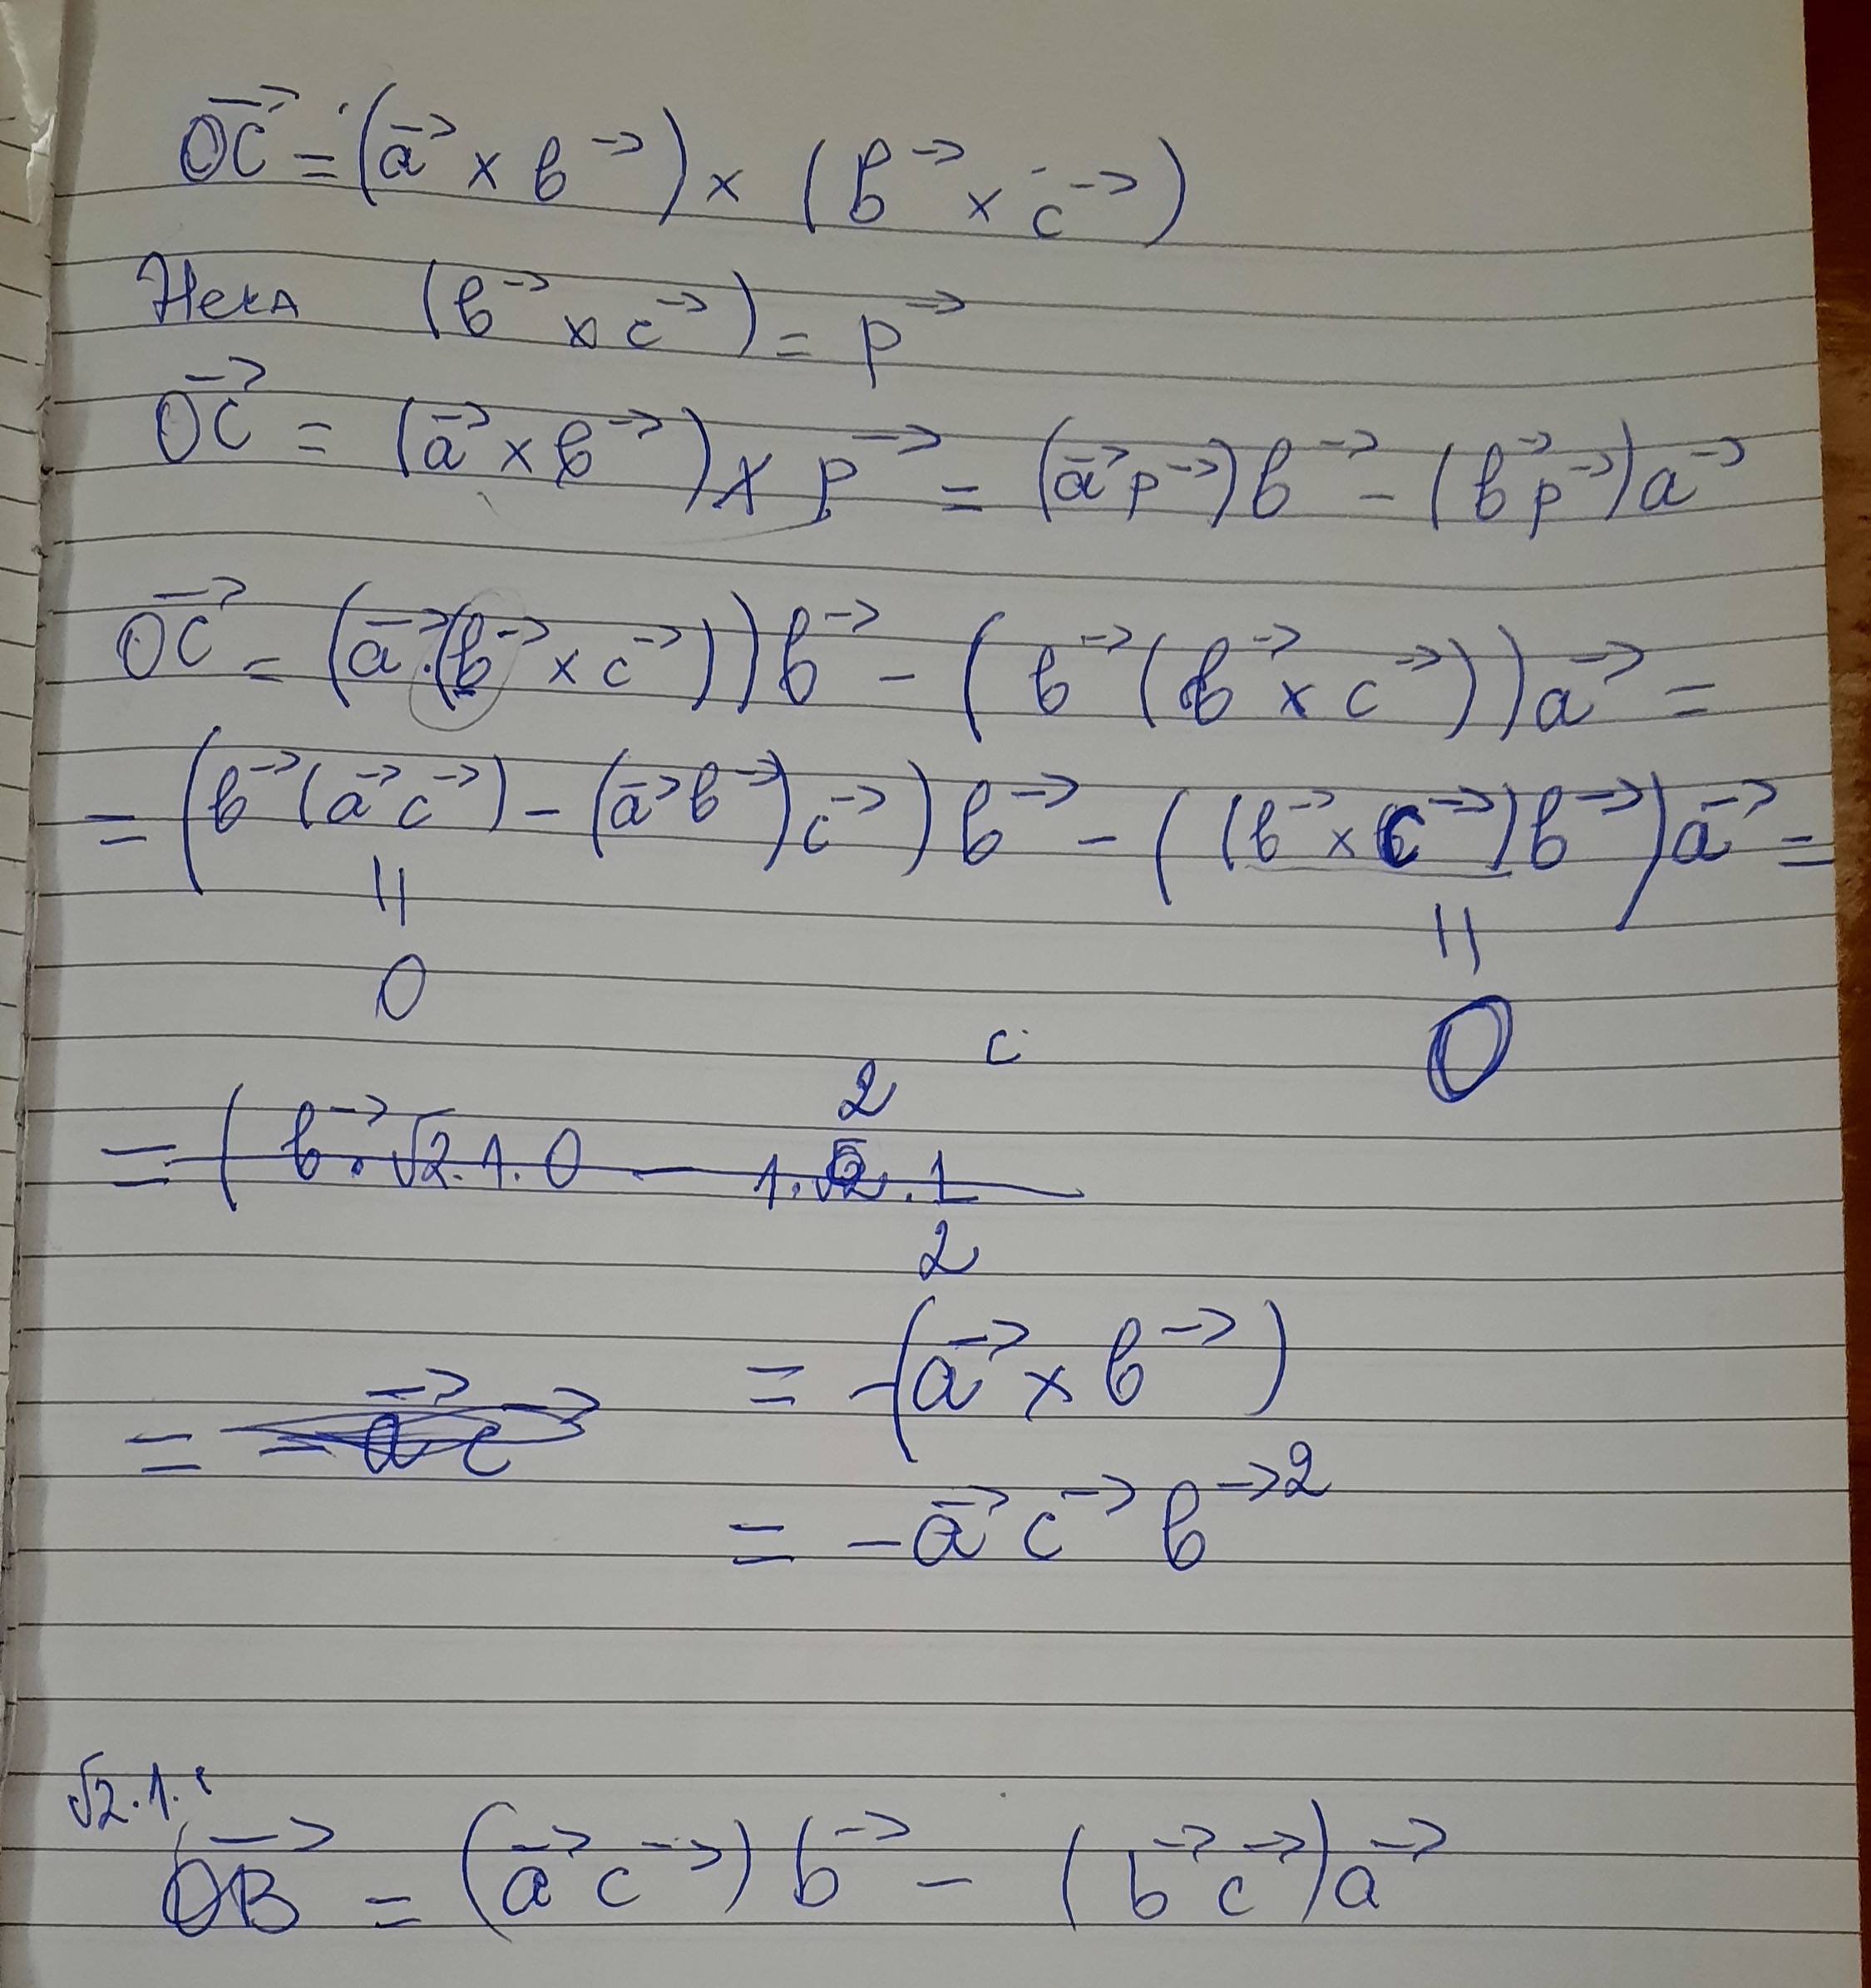 OC→ = (a→ × b→) × (b→ × c→)
Нека (b→ × c→) = p→
OC→ = (a→ × b→) × p→ = (a→ p→) b→ - (b→ p→) a→
OC→ = (a→ . (b→ × c→)) b→ - (b→ (b→ × c→)) a→ =
= (b→ (a→ c→) - (a→ b→) c→) b→ - ((b→ × c→) b→) a→ =
|| ||
0 0
c
2
= (b→ . √2 . 1 . 0 - 1 . √2 . 1
2
= -(a→ × b→)
= - a→ c→
= - a→ c→ b→²
√2 . 1 .
OB→ = (a→ c→) b→ - (b→ c→) a→